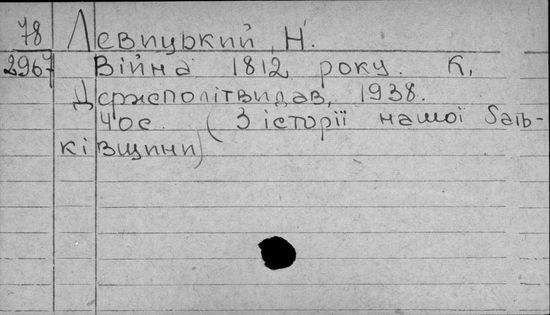 78 Левицький, Н.
2967 Війна 1812 року. К.,
Держполітвидав, 1938.
40с. (З історії нашої батьківщини)